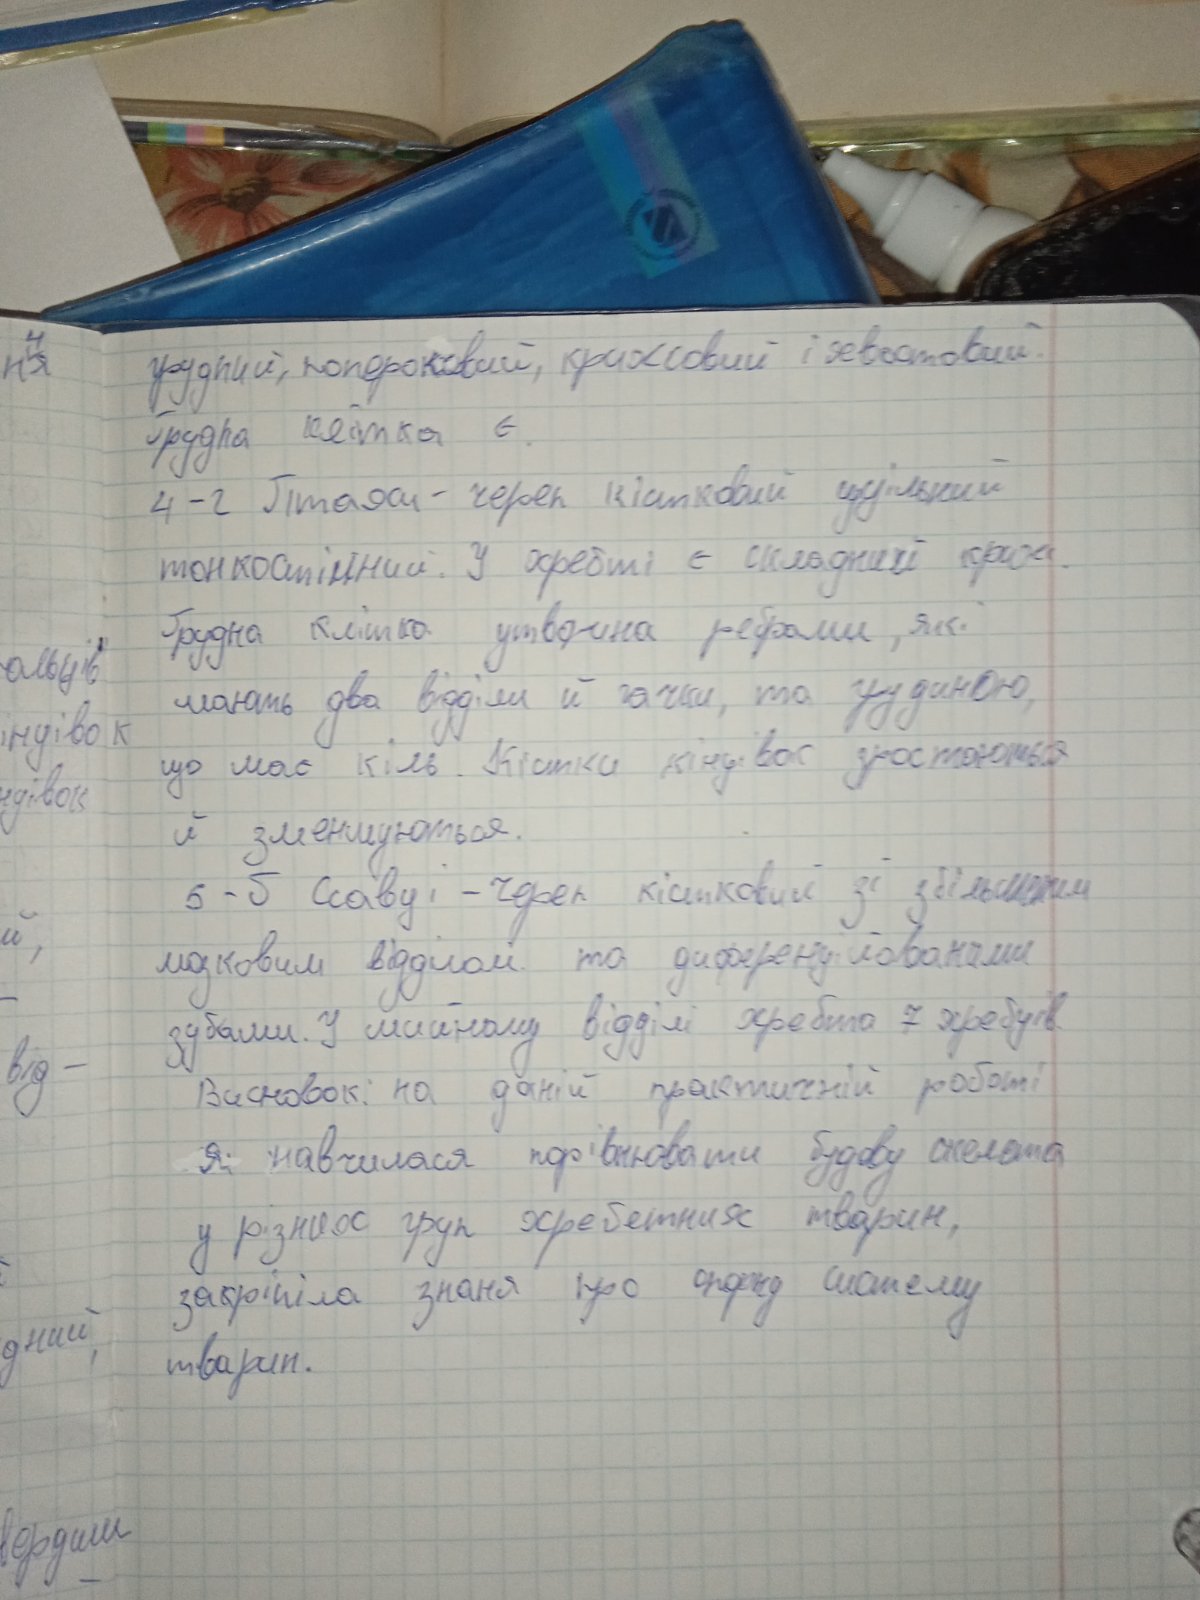 грудний, поперековий, крижовий і хвостовий.
Грудна клітка є.
4-г Птахи - череп кістковий щільний
тонкостінний. У хребті є складний криж.
Грудна клітка утворина ребрами, які
мають два відділи й гачки, та грудиною,
що має кіль. Кістки кіндівок зростаються
й зменшуються.
5-Б Ссавці - череп кістковий зі збільшеним
мозковим відділом та диференційованими
зубами. У шийному відділі хребта 7 хребців.
Висновок: на даній практичній роботі
я навчилася порівнювати будову скелета
у різних груп хребетних тварин,
закріпіла знаня про опорну систему
тварин.
ня
альців
індівок
ндівок
й,
від-
дний,
вердим